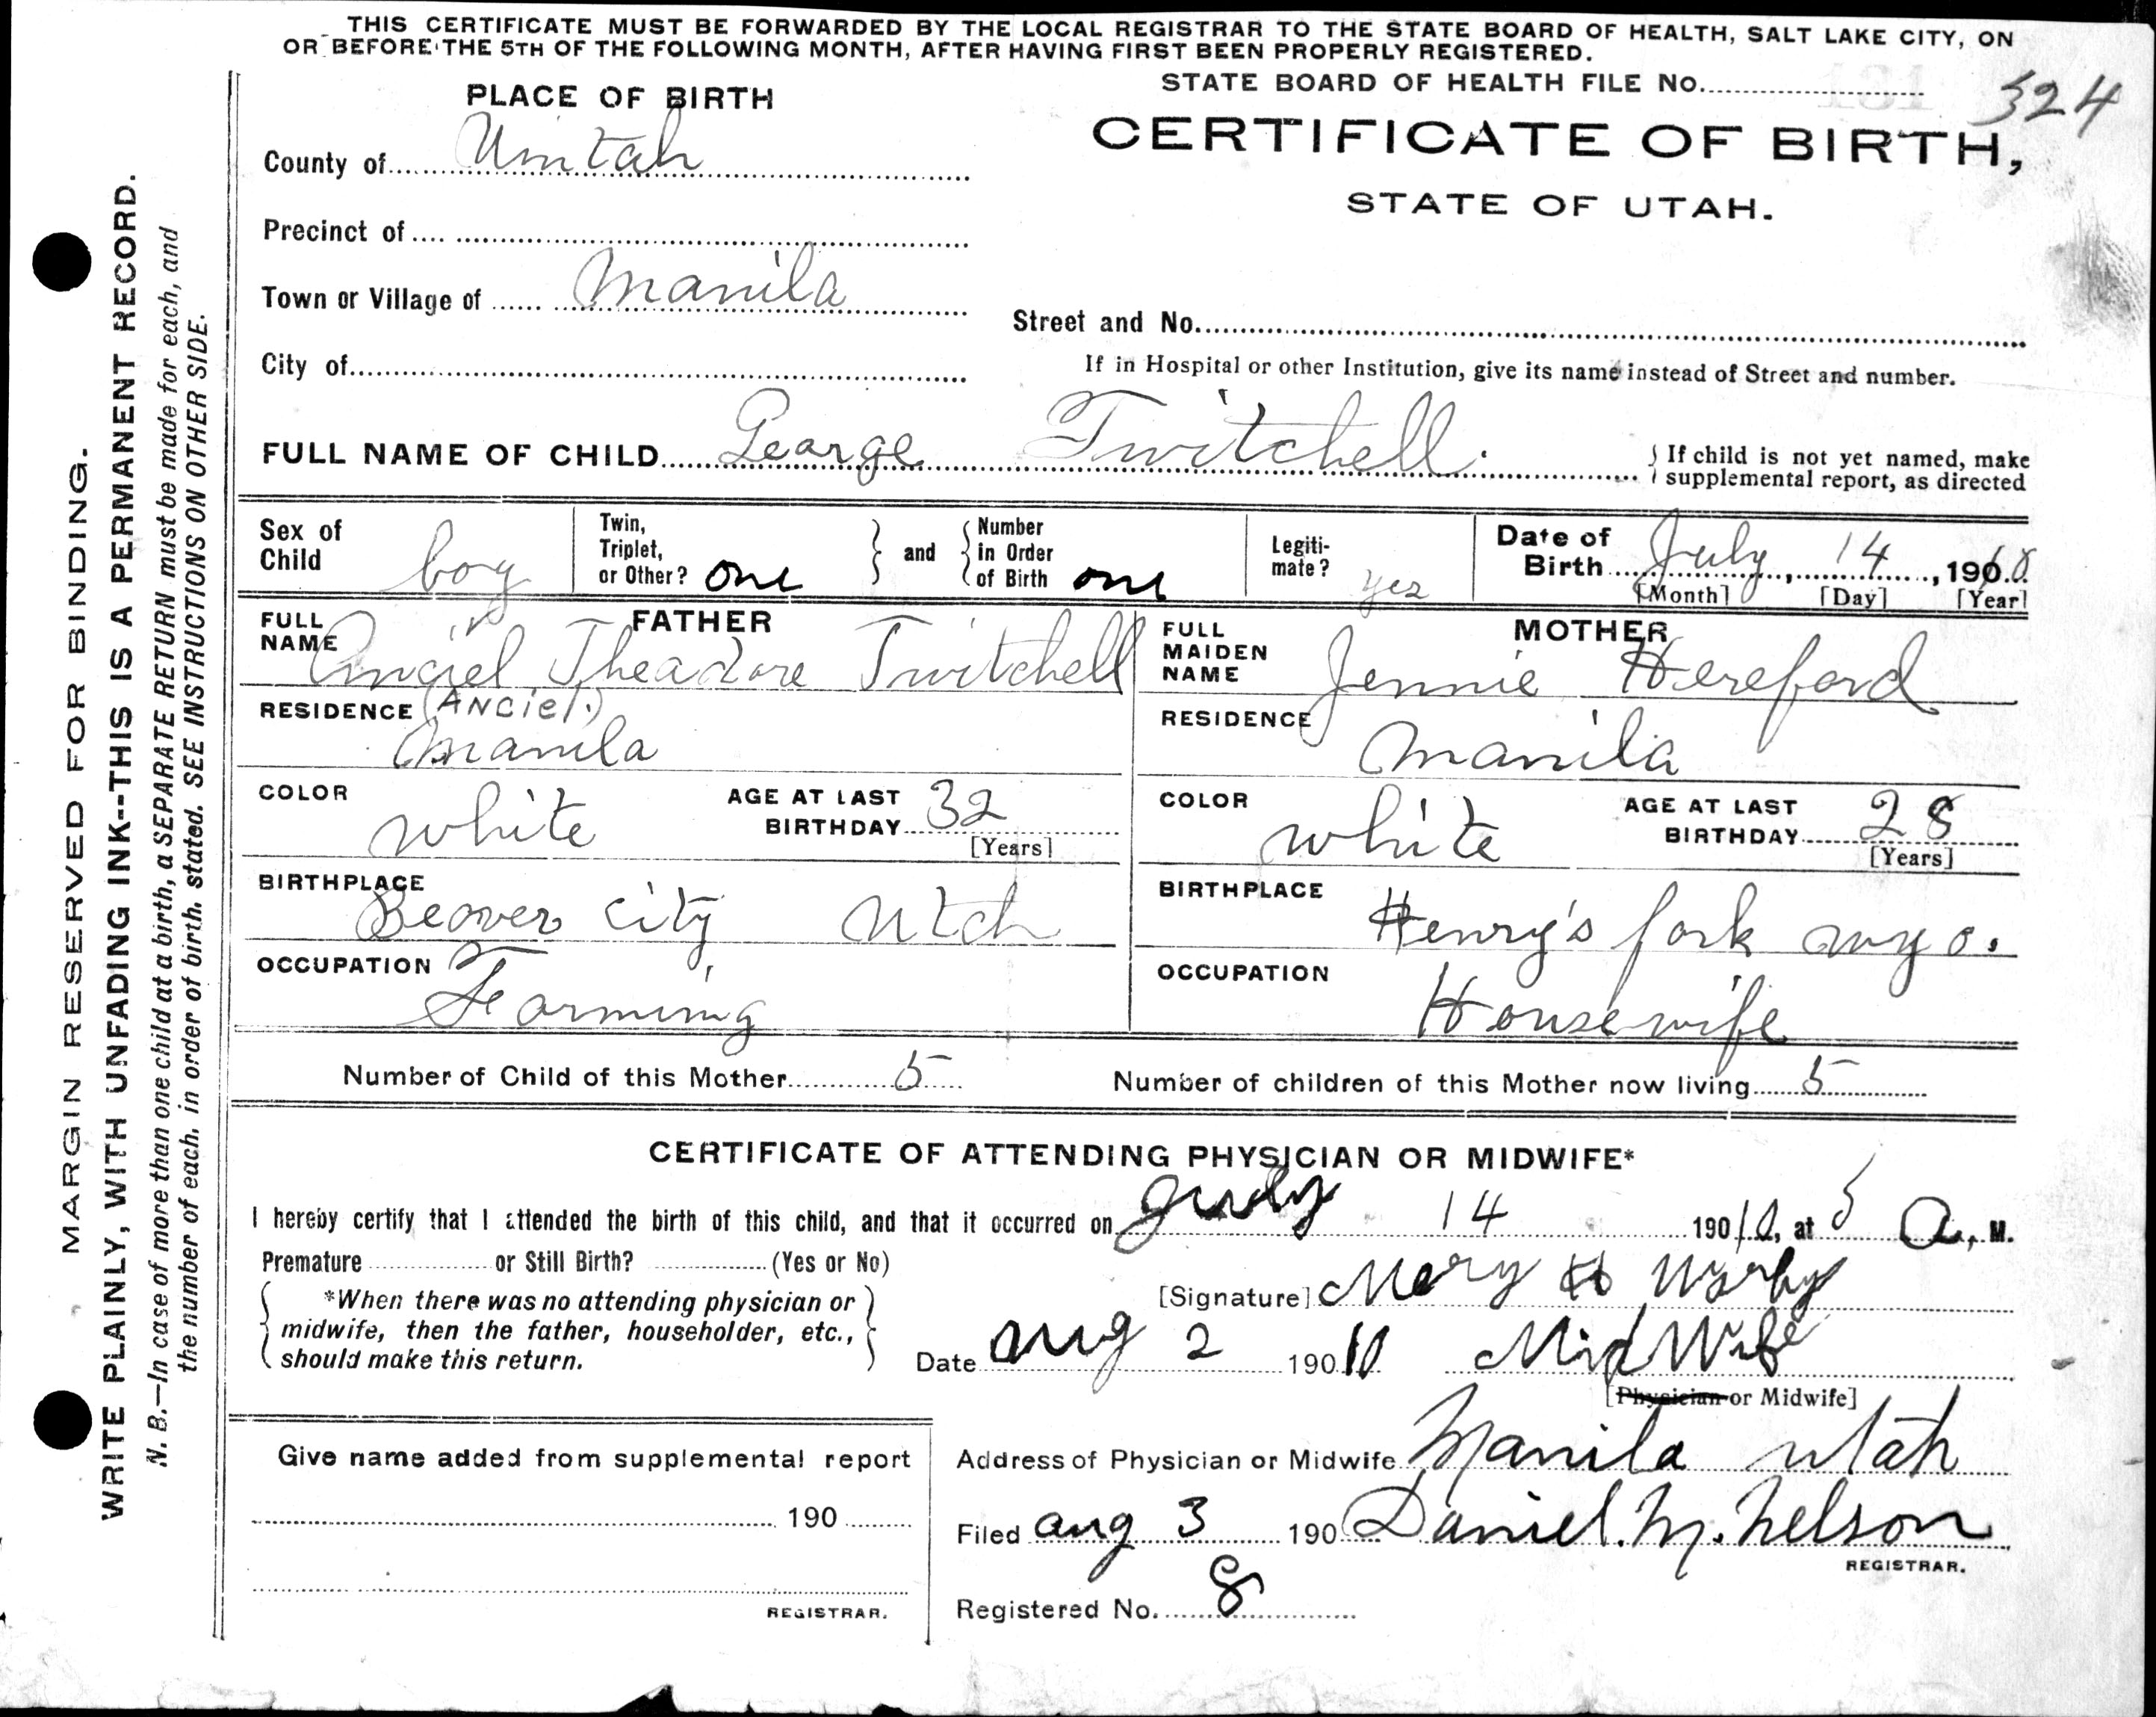 THIS CERTIFICATE MUST BE FORWARDED BY THE LOCAL REGISTRAR TO THE STATE BOARD OF HEALTH, SALT LAKE CITY, ON
OR BEFORE THE 5TH OF THE FOLLOWING MONTH, AFTER HAVING FIRST BEEN PROPERLY REGISTERED.
STATE BOARD OF HEALTH FILE No. 324
PLACE OF BIRTH
CERTIFICATE OF BIRTH,
STATE OF UTAH.
County of Uintah
Precinct of
Town or Village of Manila
Street and No.
City of
If in Hospital or other Institution, give its name instead of Street and number.
FULL NAME OF CHILD George Twitchell.
If child is not yet named, make
supplemental report, as directed
Sex of
Child boy
Twin,
Triplet,
or Other? one
and
Number
in Order
of Birth one
Legiti-
mate? yes
Date of
Birth July, 14, 1910.
[Month] [Day] [Year]
FATHER
FULL
NAME Anciel Theadore Twitchell
(ANCiel.)
RESIDENCE
Manila
COLOR white
AGE AT LAST
BIRTHDAY 32
[Years]
BIRTHPLACE
Beaver City Utah
OCCUPATION
Farming
MOTHER
FULL
MAIDEN
NAME Jennie Hereford
RESIDENCE
Manila
COLOR white
AGE AT LAST
BIRTHDAY 28
[Years]
BIRTHPLACE
Henry's fork wyo.
OCCUPATION
Housewife
Number of Child of this Mother 5
Number of children of this Mother now living 5
CERTIFICATE OF ATTENDING PHYSICIAN OR MIDWIFE*
I hereby certify that I attended the birth of this child, and that it occurred on July 14 190 10, at 5 a, M.
Premature or Still Birth? (Yes or No)
*When there was no attending physician or
midwife, then the father, householder, etc.,
should make this return.
[Signature] Mary H
Date Aug 2 190 10 MidWife
[Physician or Midwife]
Give name added from supplemental report
190
REGISTRAR.
Address of Physician or Midwife Manila utah
Filed aug 3 190 Daniel. M. Nelson
REGISTRAR.
Registered No. 8
MARGIN RESERVED FOR BINDING.
WRITE PLAINLY, WITH UNFADING INK--THIS IS A PERMANENT RECORD.
N. B.—In case of more than one child at a birth, a SEPARATE RETURN must be made for each, and
the number of each, in order of birth, stated. SEE INSTRUCTIONS ON OTHER SIDE.